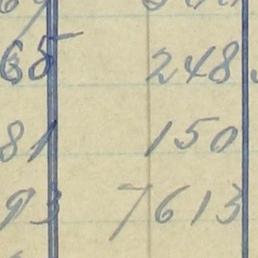 65 248
81 150
93 7613